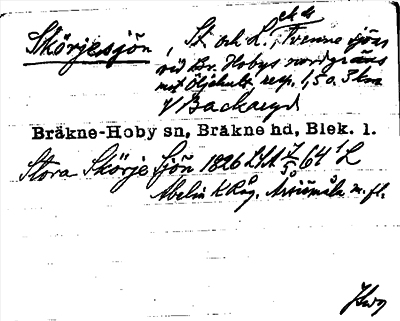 Skörjesjön, St. och L., Tvenne sjöar
vid Br. Hobys nordgräns
mot Öljehult, resp. 1,5 o. 3 km
V Backaryd
Bräkne-Hoby sn, Bräkne hd, Blek. l.
Stora Skörje Sjön 1826 LSA 64 L
Abelin K Räg.